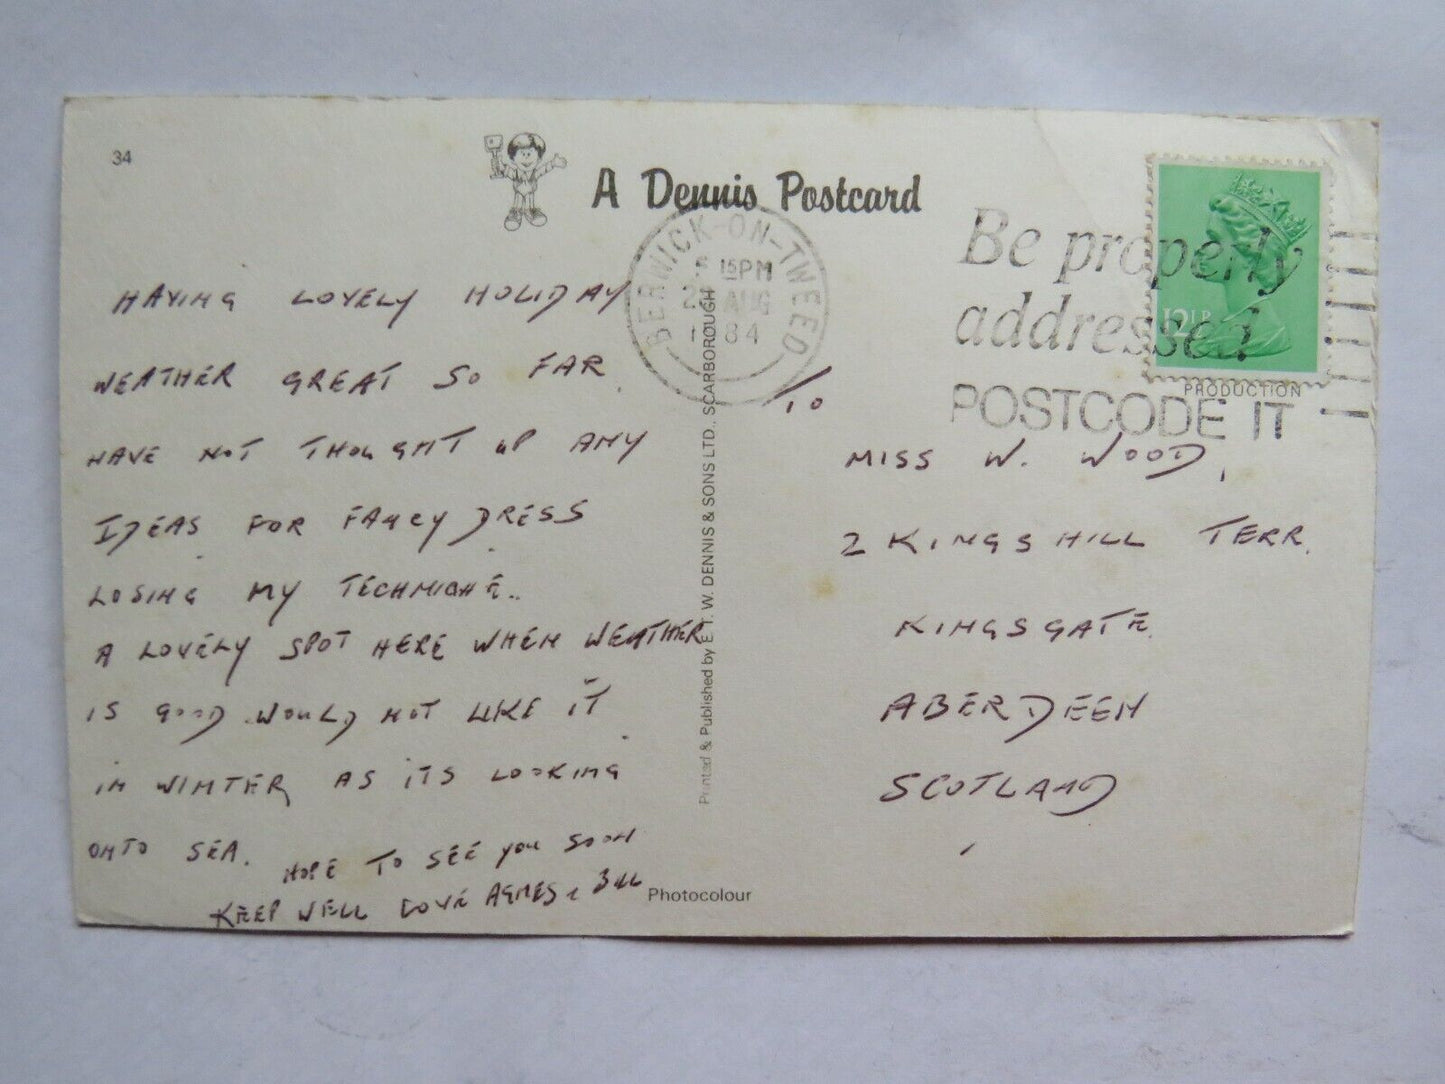 34
A Dennis Postcard
BERWICK-ON-TWEED
15PM
AUG
84
Be properly
addressed
POSTCODE IT
12½P
PRODUCTION
HAVING LOVELY HOLIDAY
WEATHER GREAT SO FAR.
HAVE NOT THOUGHT UP ANY
IDEAS FOR FANCY DRESS.
LOSING MY TECHNICHE..
A LOVELY SPOT HERE WHEN WEATHER
IS GOOD. WOULD NOT LIKE IT
IN WINTER, AS ITS LOOKING
ONTO SEA. HOPE TO SEE YOU SOON
KEEP WELL LOVE AGNES & BILL
Printed & Published by E. T. W. DENNIS & SONS LTD., SCARBOROUGH
Photocolour
TO
MISS W. WOOD,
2 KINGSHILL TERR.
KINGSGATE.
ABERDEEN
SCOTLAND